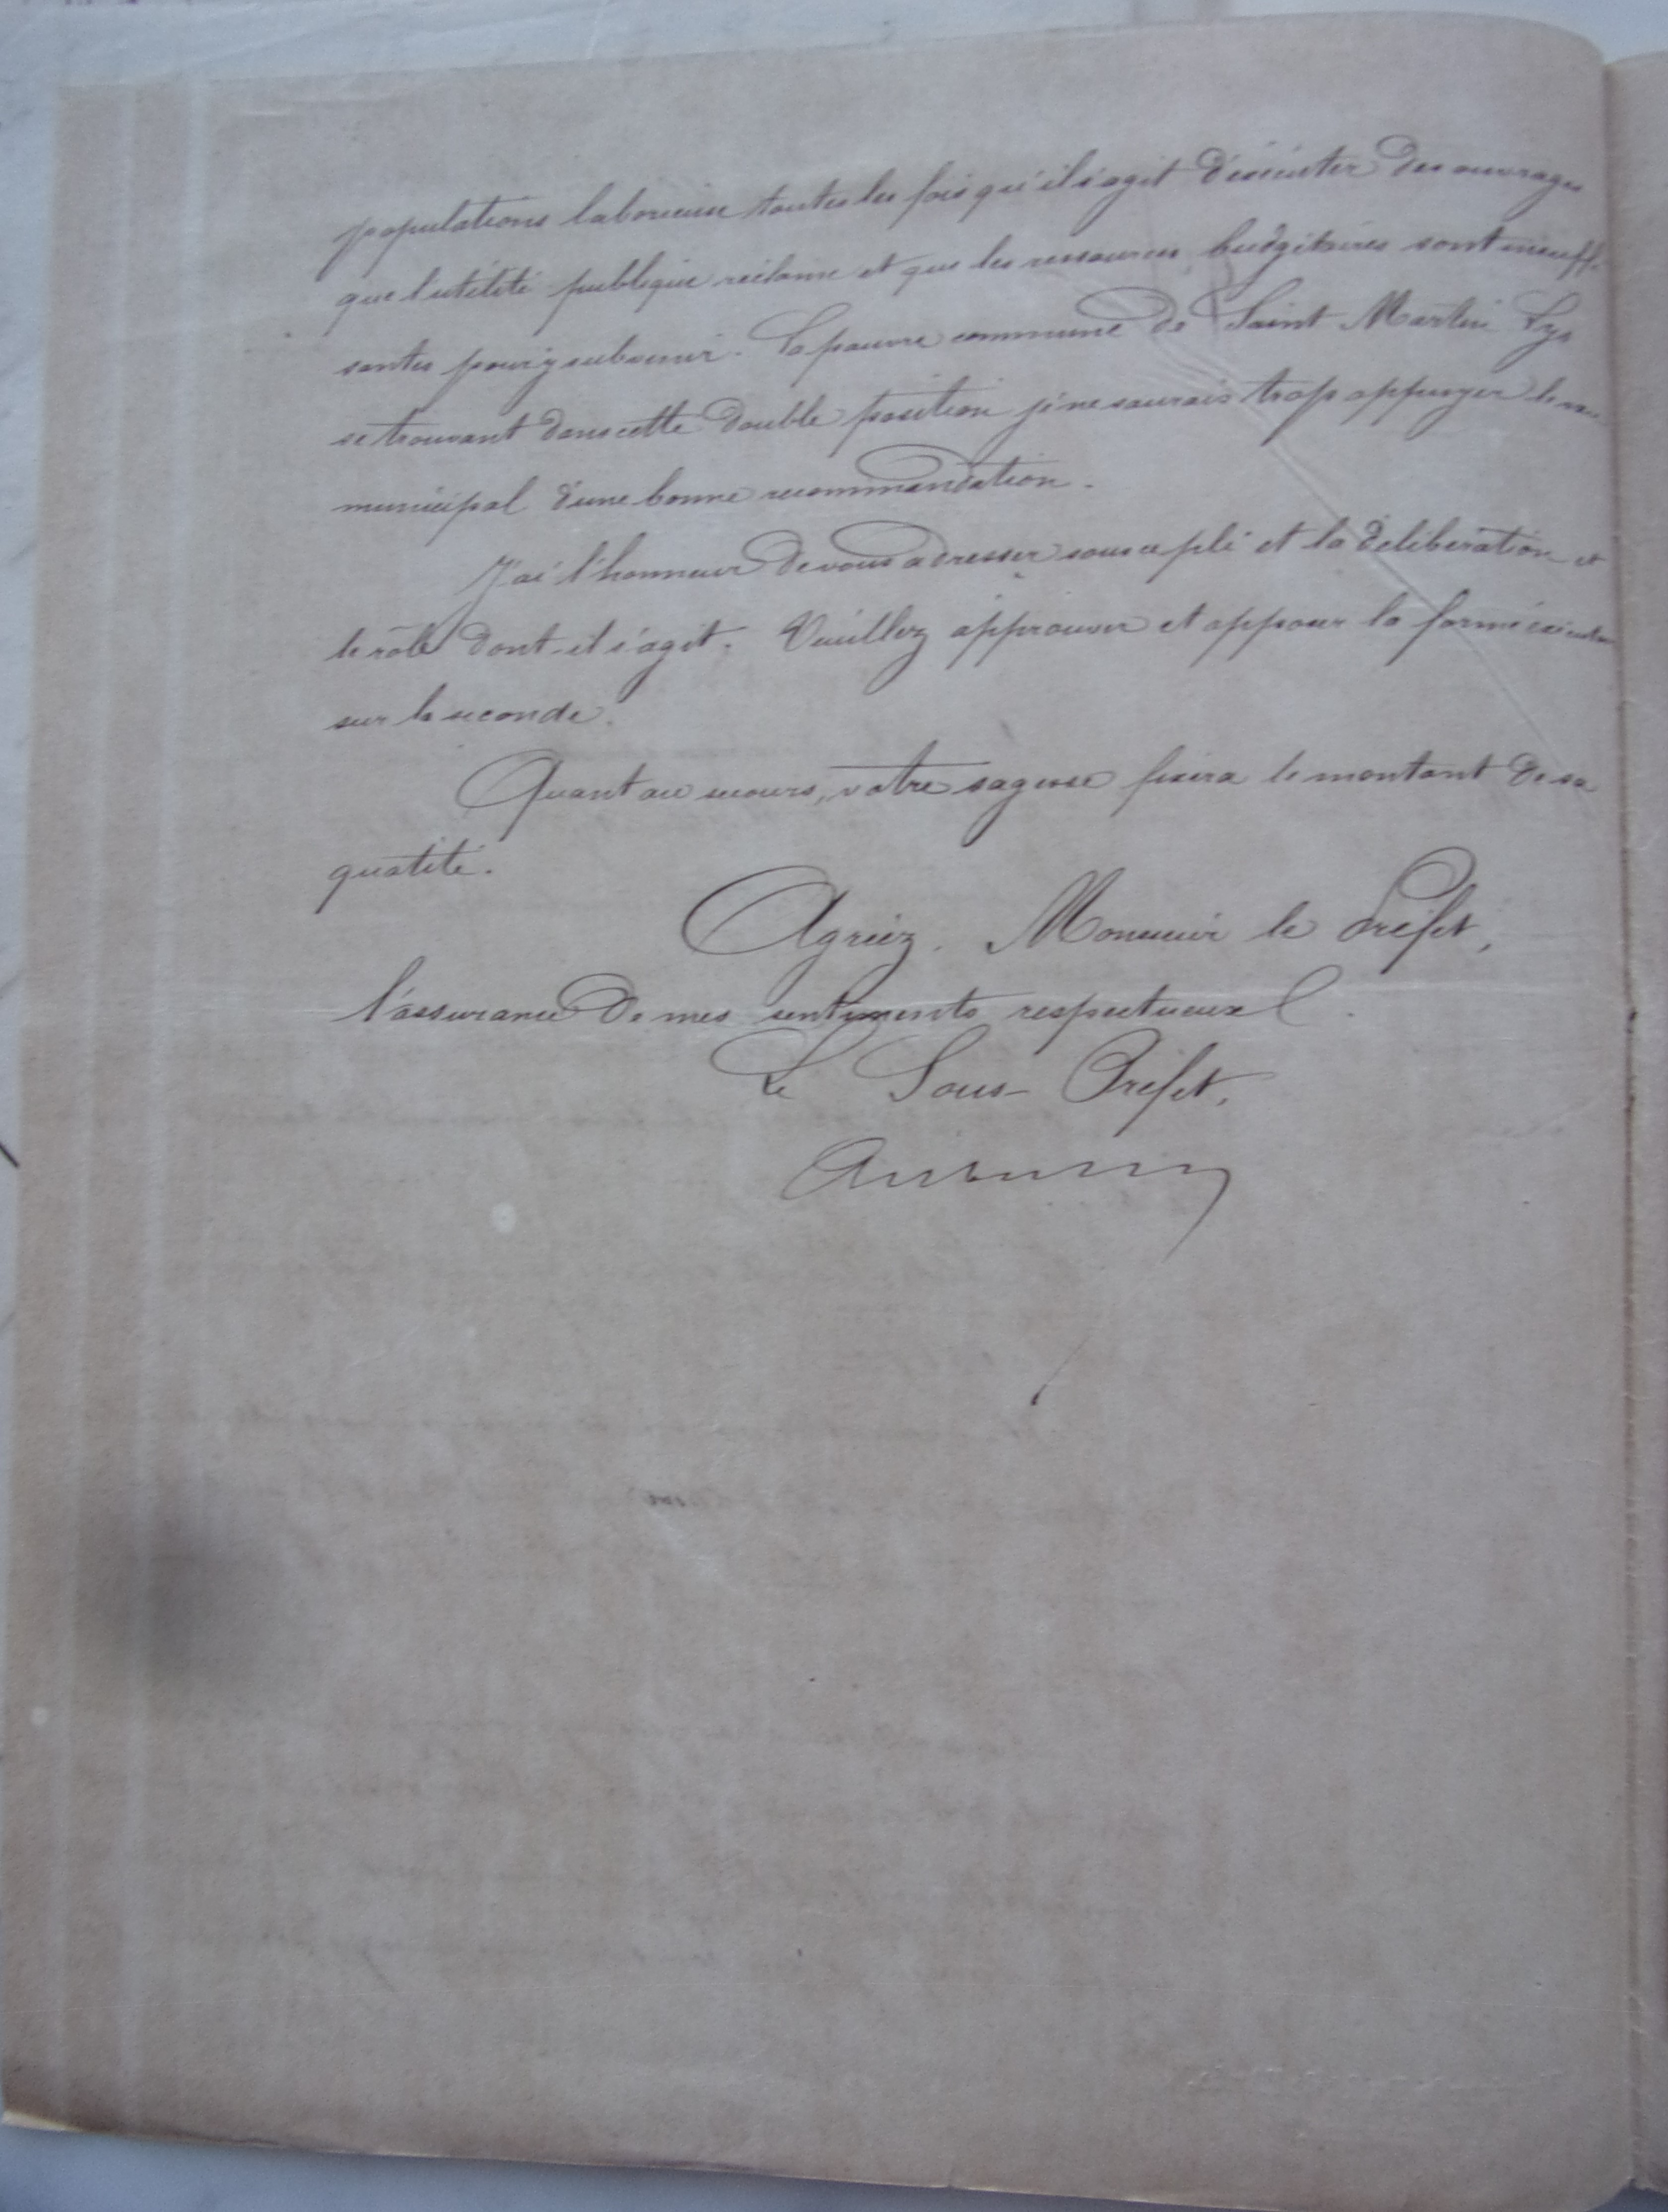 populations laborieuse toutes les fois qu'il s'agit d'exécuter des ouvrages
que l'utilité publique réclame et que les ressources budgétaires sont insuffi-
santes pour y subvenir. La pauvre commune de Saint Martin Lys
se trouvant dans cette double position je ne saurais trop appuyer le
municipal d'une bonne recommandation.
J'ai l'honneur de vous adresser sous ce pli et la délibération et
le rôle dont il s'agit. Veuillez approuver et apposer la forme
sur la seconde.
Quant au secours, votre sagesse fixera le montant de sa
quotité.
Agréez, Monsieur le Préfet,
l'assurance de mes sentiments respectueux.
Le Sous-Préfet,